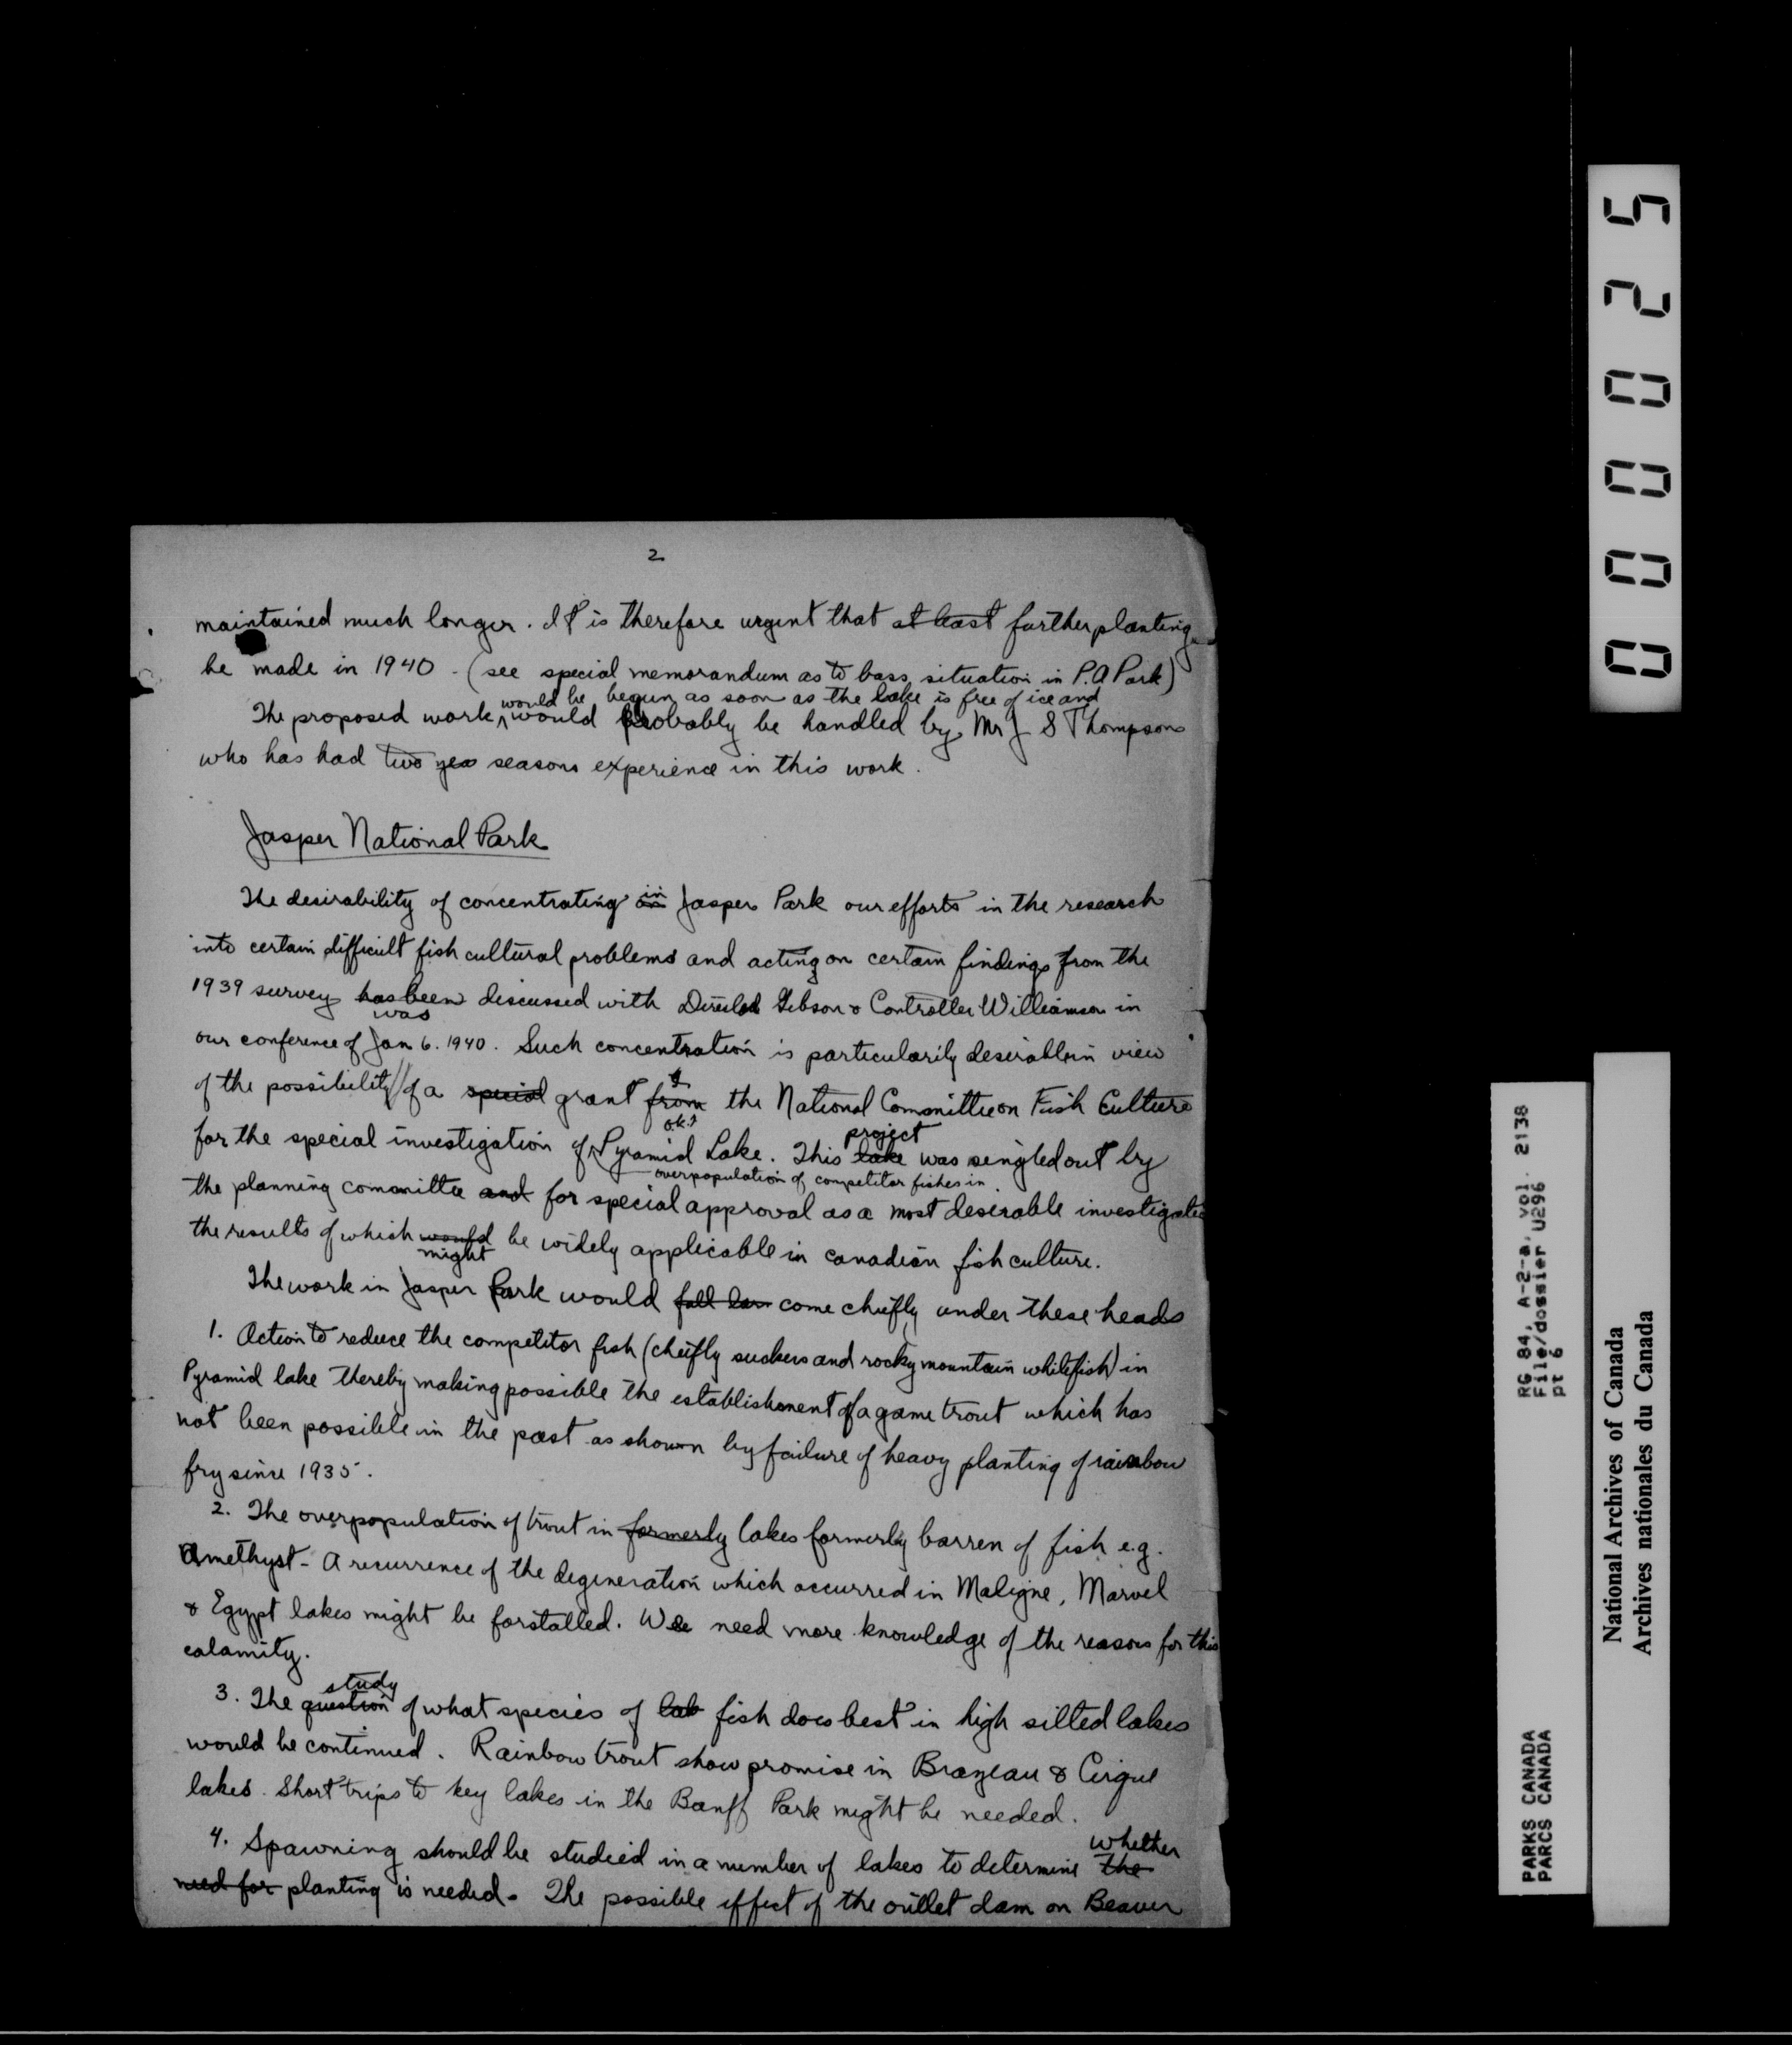 2
maintained much longer. It is therefore urgent that at least further planting
be made in 1940 - (see special memorandum as to bass situation in P.A Park)
would be begun as soon as the lake is free of ice and
The proposed work would probably be handled by Mr J S Thompson
who has had two yea seasons experience in this work.
Jasper National Park
in
The desirability of concentrating on Jasper Park our efforts in the research
into certain difficult fish cultural problems and acting on certain findings from the
1939 survey has been discussed with Director Gibson & Controller Williamson in
was
our conference of Jan 6. 1940. Such concentration is particularily desirable in view
of the possibility of a special grant from the National Committee on Fish Culture
o.k.?
project
for the special investigation of Pyramid Lake. This lake was singled out by
overpopulation of competitor fishes in
the planning committee and for special approval as a most desirable investigatio
the results of which would be widely applicable in canadian fish culture.
might
The work in Jasper Park would fall come chiefly under these heads
1. Action to reduce the competitor fish (cheifly suckers and rocky mountain whitefish) in
Pyramid lake thereby making possible the establishment of a game trout which has
not been possible in the past as shown by failure of heavy planting of rainbow
fry since 1935.
2. The overpopulation of trout in formerly lakes formerly barren of fish e.g.
Amethyst - A recurrence of the degeneration which occurred in Maligne, Marvel
& Egypt lakes might be forstalled. We need more knowledge of the reasons for this
calamity.
study
3. The question of what species of lak fish does best in high silted lakes
would be continued. Rainbow trout show promise in Brazeau & Cirque
lakes. Short trips to key lakes in the Banff Park might be needed.
whether
4. Spawning should be studied in a number of lakes to determine the
need for planting is needed. The possible effect of the outlet dam on Beaver
000025
RG 84, A-2-a, vol. 2138
File/dossier U296
pt 6
PARKS CANADA
PARCS CANADA
National Archives of Canada
Archives nationales du Canada